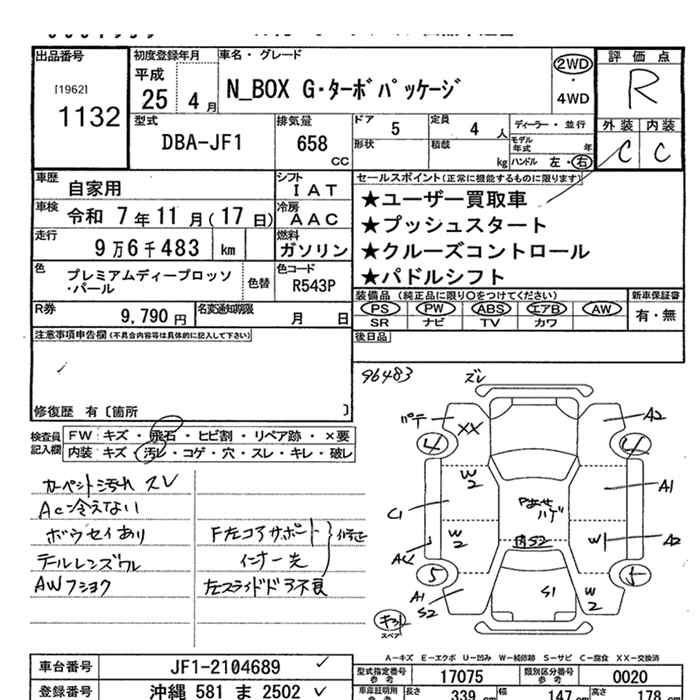 出品番号
[1962]
1132
初度登録年月
平成
25 4 月
車名・グレード
N_BOX G・ターボパッケージ
2WD
・
4WD
評価点
R
型式
DBA-JF1
排気量
658
CC
ドア
5
定員
4 人
形状
積載
kg
ディーラー・並行
モデル年式
年
ハンドル 左・右
外装 内装
C C
車歴
自家用
シフト
IAT
車検
令和 7 年 11 月 ( 17 日)
冷房
AAC
走行
9 万 6 千 483 km
燃料
ガソリン
色
プレミアムディープロッソ
・パール
色替
色コード
R543P
R券
9,790 円
名変通知期限
月 日
セールスポイント(正常に機能するものに限ります)
★ユーザー買取車
★プッシュスタート
★クルーズコントロール
★パドルシフト
装備品 (純正品に限り○をつけてください)
新車保証書
PS PW ABS エアB AW
SR ナビ TV カワ
有・無
後日品
注意事項申告欄(不具合内容等は具体的に記入して下さい)
修復歴 有〔箇所 〕
検査員
記入欄
FW キズ ・ 飛石 ・ ヒビ割 ・ リペア跡 ・ ×要
内装 キズ ・ 汚レ ・ コゲ ・ 穴 ・ スレ ・ キレ ・ 破レ
カーペット汚れ スレ
Ac冷えない
ボウセイあり
テールレンズワレ
AWフショク
F左コアサポート
インナー先
修正
左スライドドア不良
96483
ズレ
パテ
XX
A2
4
4
W2
A1
C1
ハゲ
W2
W
A2
S2
5
5
A1
S2
S1
W2
スペア
A－キズ E－エクボ U－凹み W－補修跡 S－サビ C－腐食 XX－交換済
車台番号
JF1-2104689
型式指定番号
参考
17075
類別区分番号
参考
0020
登録番号
沖縄 581 ま 2502
車庫証明用
長さ
339 cm
幅
147 cm
高さ
178 cm